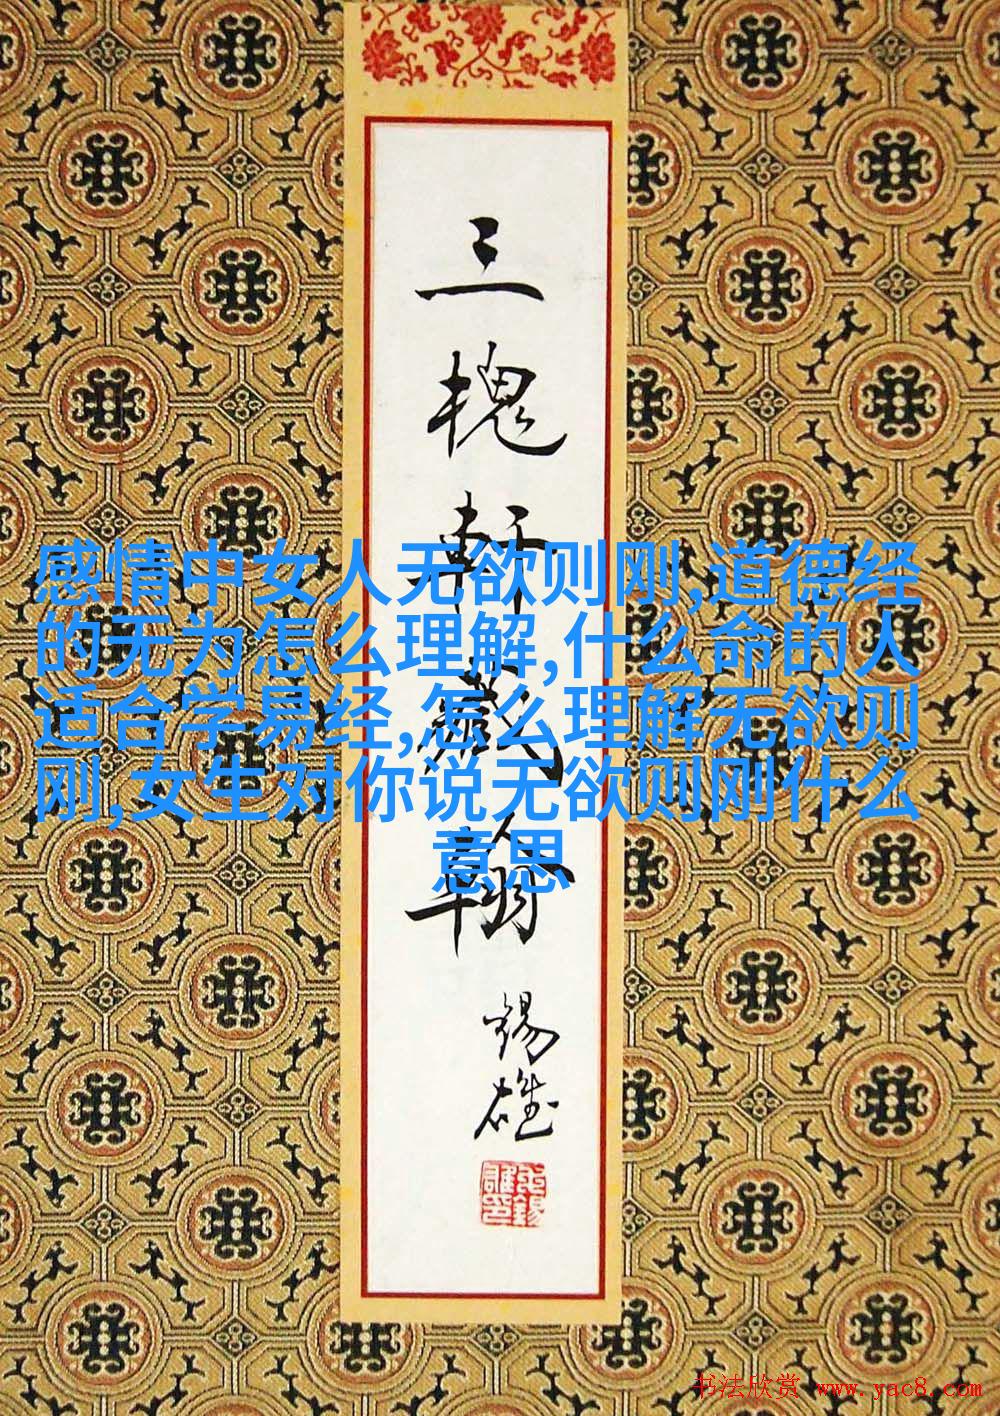 三槐軒藏翰
锡雄
感情中女人无欲则刚,道德经
的无为怎么理解,什么命的人
适合学易经,怎么理解无欲则
刚,女生对你说无欲则刚什么
意思
书法欣赏 www.yac8.com